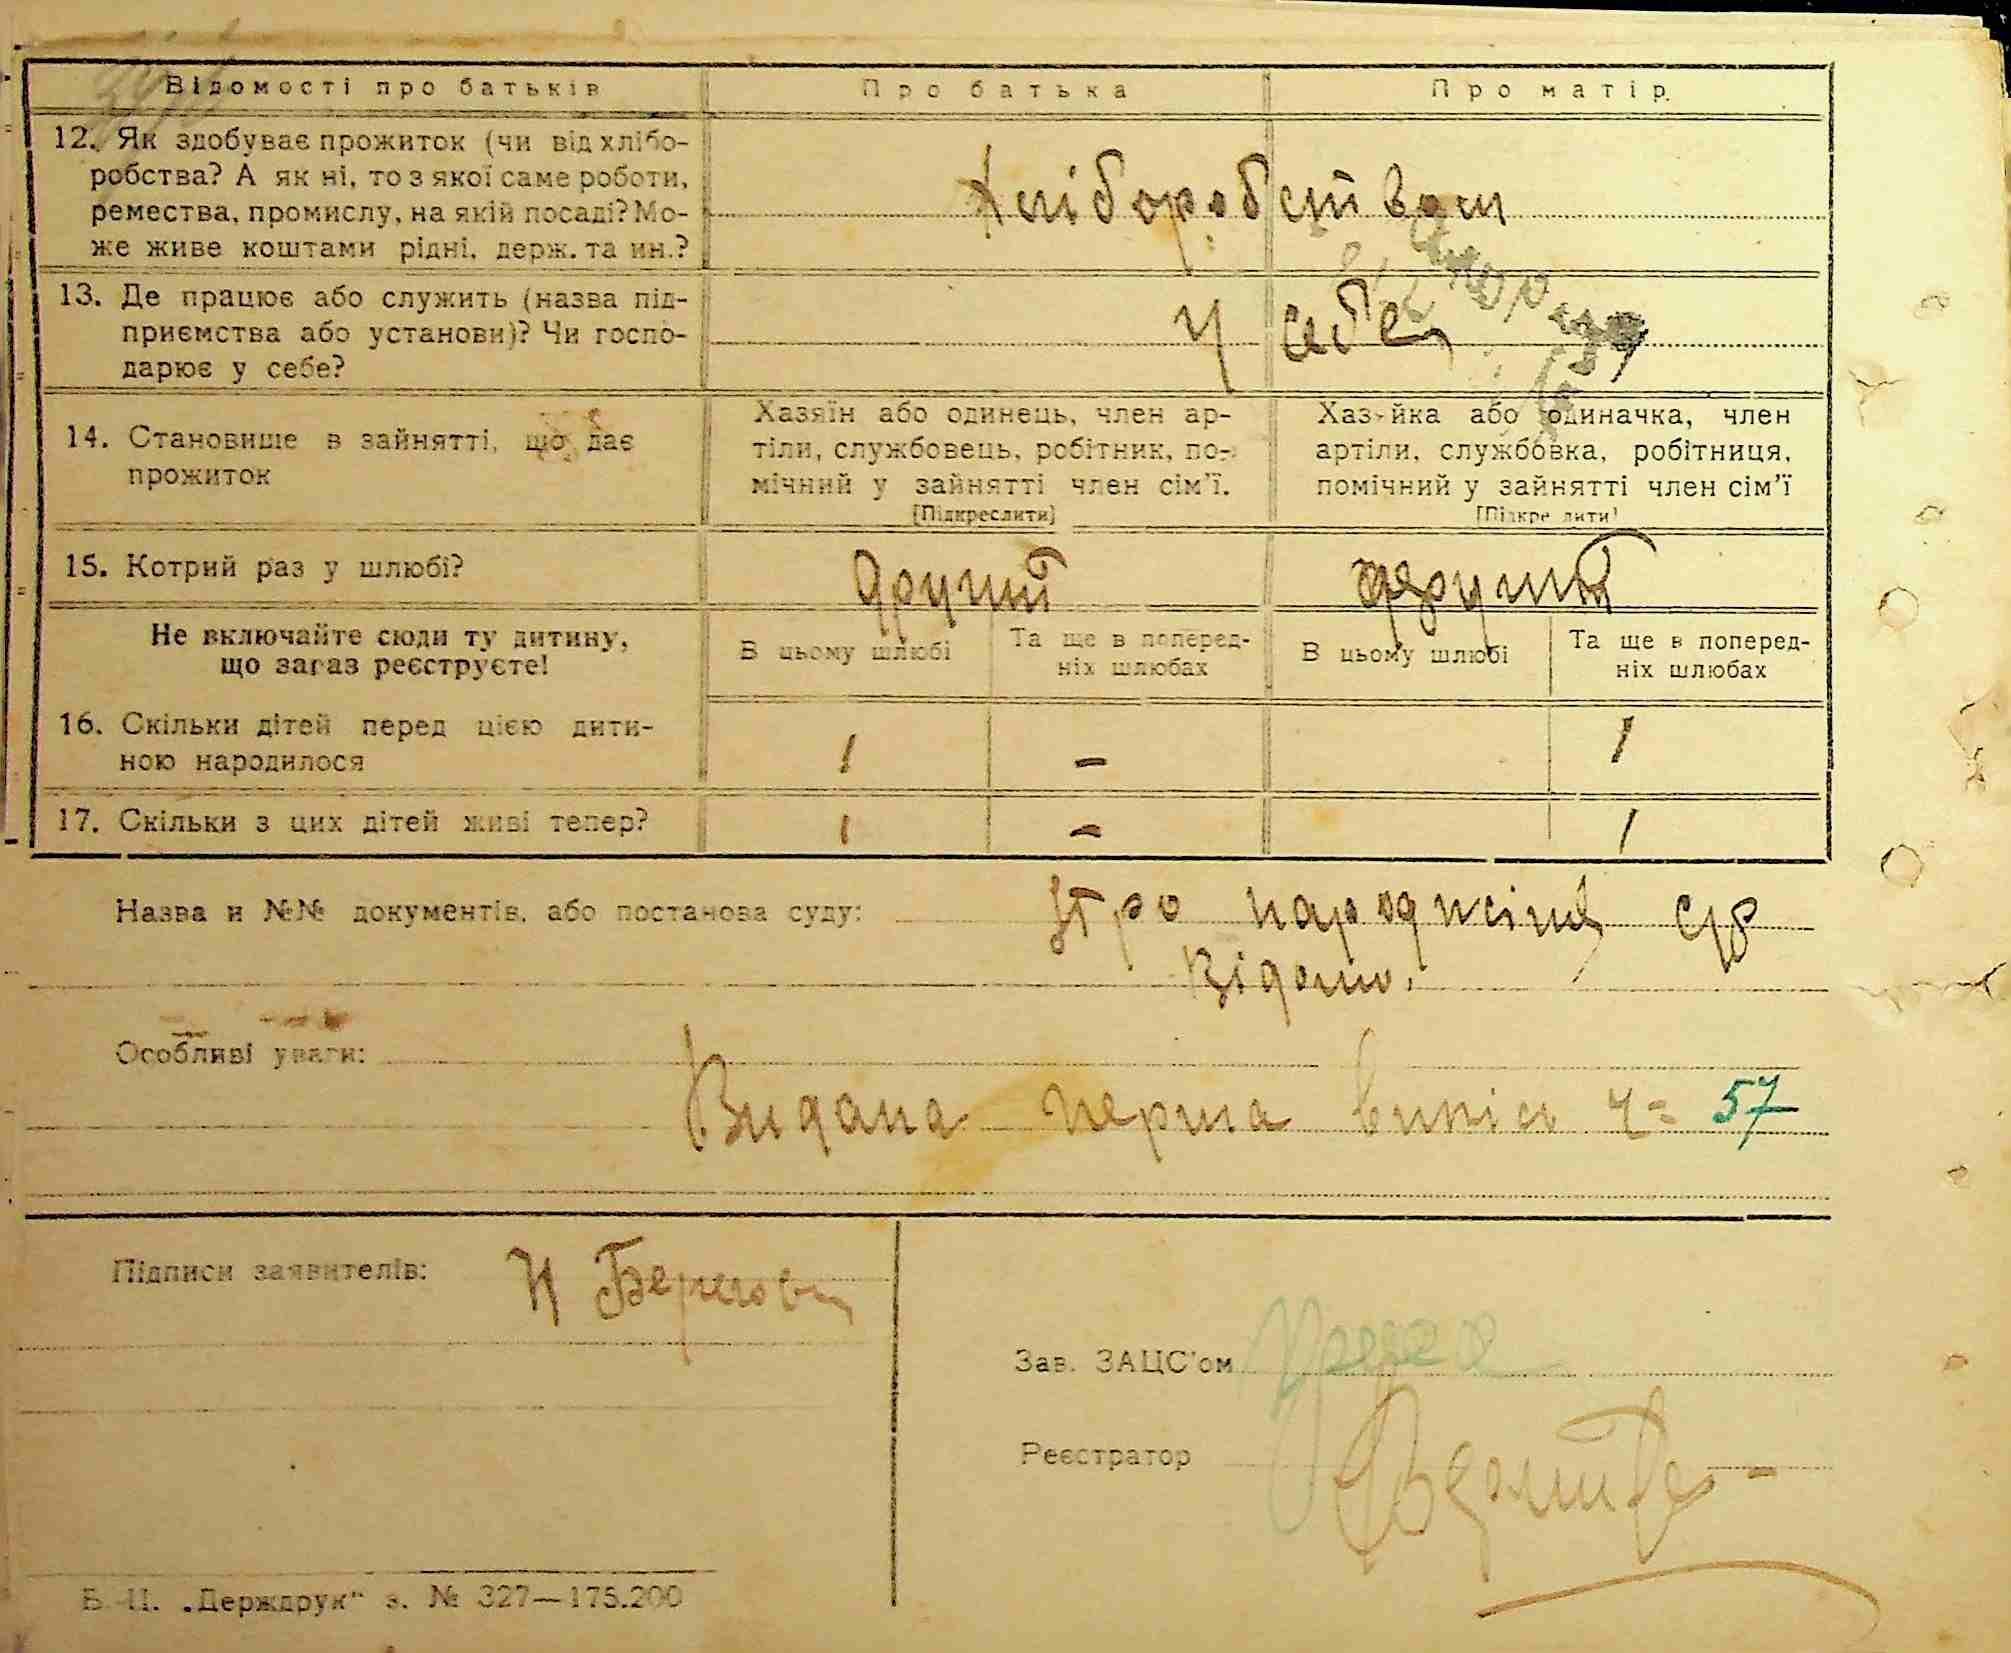 Відомості про батьків
Про батька
Про матір.
12. Як здобуває прожиток (чи від хлібо-
робства? А як ні, то з якої саме роботи,
ремества, промислу, на якій посаді? Мо-
же живе коштами рідні, держ. та ин.?
Хліборобством
13. Де працює або служить (назва під-
приємства або установи)? Чи госпо-
дарює у себе?
У себе
14. Становище в зайнятті, що дає
прожиток
Хазяїн або одинець, член ар-
тіли, службовець, робітник, по-
мічний у зайнятті член сім'ї.
[Підкреслити]
Хазяйка або одиначка, член
артіли, службовка, робітниця,
помічний у зайнятті член сім'ї
[Підкреслити]
15. Котрий раз у шлюбі?
другий
другий
Не включайте сюди ту дитину,
що зараз реєструєте!
В цьому шлюбі
Та ще в поперед-
ніх шлюбах
В цьому шлюбі
Та ще в поперед-
ніх шлюбах
16. Скільки дітей перед цією дити-
ною народилося
1 - 1
17. Скільки з цих дітей живі тепер?
1 - 1
Назва и №№ документів, або постанова суду: Про народжіння с/р
Відомо.
Особливі уваги:
Видана перша випісь ч= 57
Підписи заявителів: Н Берегова
Зав. ЗАЦС'ом
Реєстратор
Б.-Ц. „Держдрук" з. № 327—175.200